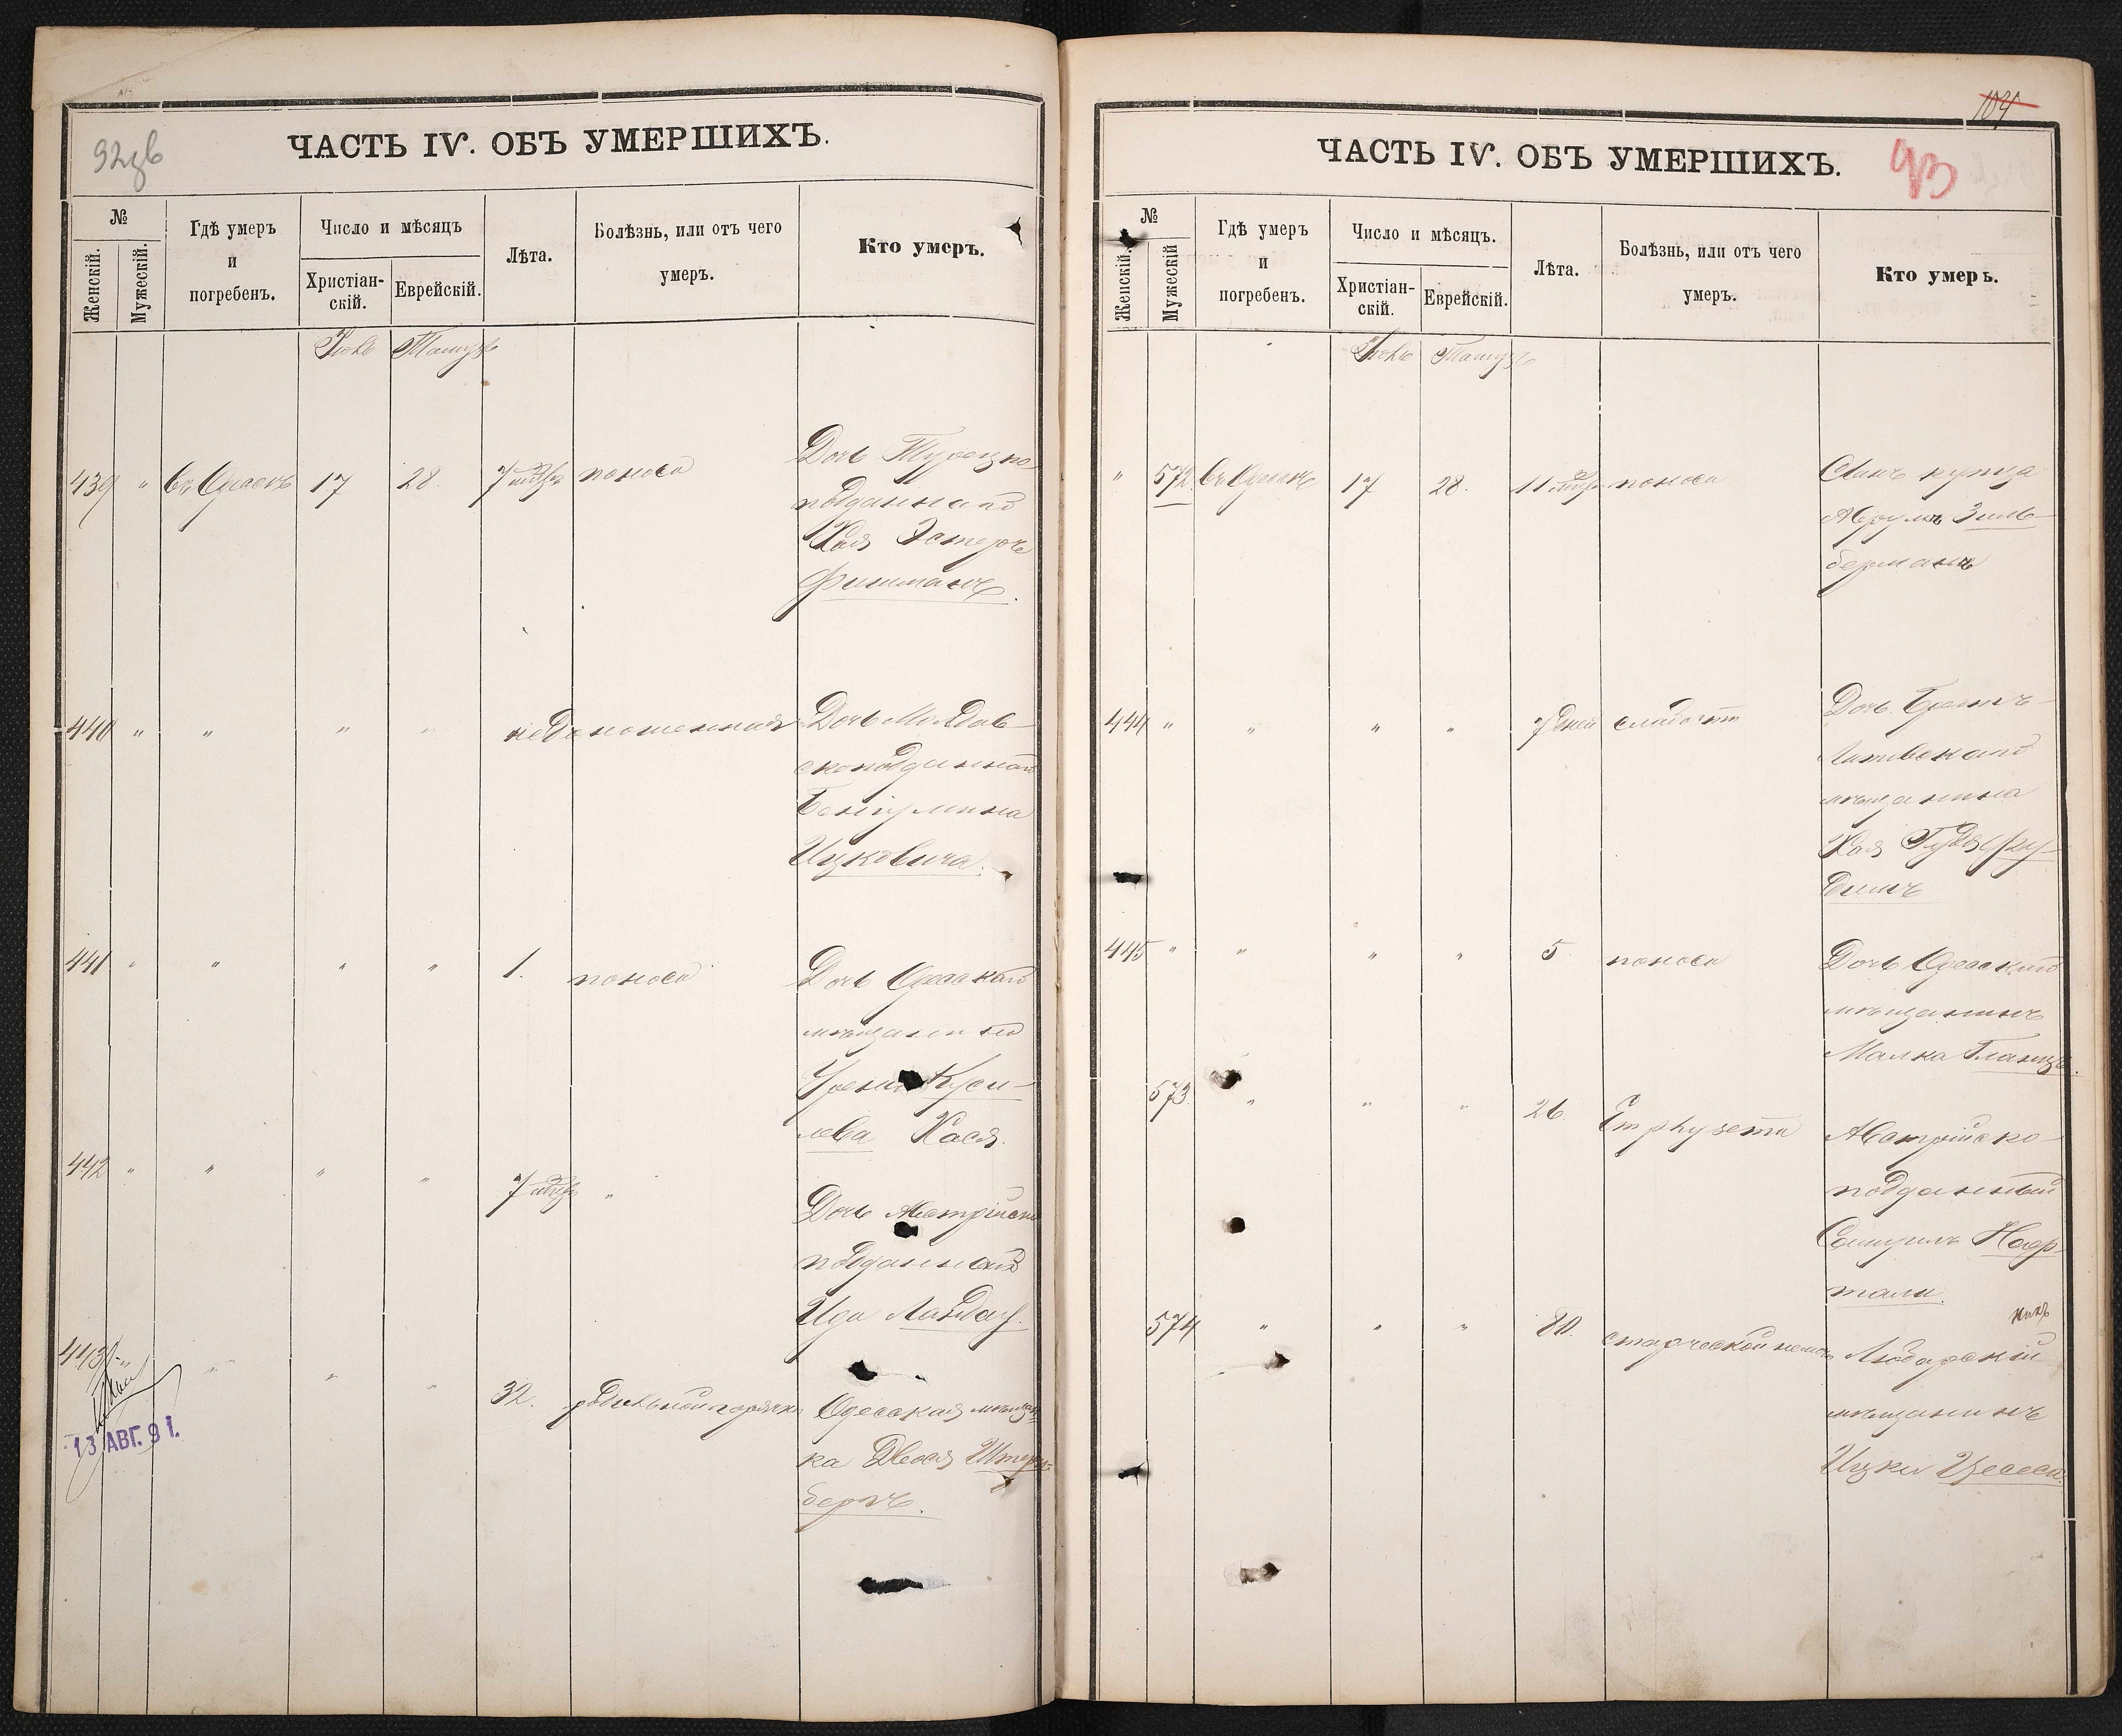 ЧАСТЬ IV. ОБЪ УМЕРШИХЪ.
№
Женскій.
Мужескій.
Гдѣ умеръ
и
погребенъ.
Число и мѣсяцъ
Христіан-
скій.
Еврейскій.
Лѣта.
Болѣзнь, или отъ чего
умеръ.
Кто умеръ.
Іюль Тамузъ
439 " въ Одессѣ 17 28. 7 поноса Дочь Турецко
подданнаго
Хая Эстеръ
Фишманъ.
440 " " " " недоношенная Дочь Молдав-
скоподданнаго
Беніумина
Ицковича.
441 " " " " 1. поноса Дочь Одесскаго
мѣщанина
Кася.
442 " " " " 7 " Дочь Австрійско
подданнаго
Ида Ландау.
443 " " " " 32. родильной горячки Одесская мѣщан
ка Двося Штерн-
бергъ.
13 АВГ. 91.
104
93
ЧАСТЬ IV. ОБЪ УМЕРШИХЪ.
№
Женскій.
Мужескій
Гдѣ умеръ
и
погребенъ.
Число и мѣсяцъ.
Христіан-
скій.
Еврейскій.
Лѣта.
Болѣзнь, или отъ чего
умеръ.
Кто умеръ.
Іюль Тамузъ
" 572 въ Одессѣ 17 28. 11 поноса Сынъ купца
Аврумъ Зиль-
берманъ
444 " " " " 7 дней слабости Дочь Брестъ-
Литовскаго
мѣщанина
Хая
445 " " " " 5 поноса Дочь Одесскаго
мѣщанинъ
Малка Гланцъ.
573. " " " 26. Emphysema Австрійско-
подданный
Самуилъ Наф-
тали.
574 " " " 80. старческой немощи Любарскій
мѣщанинъ
Ицко